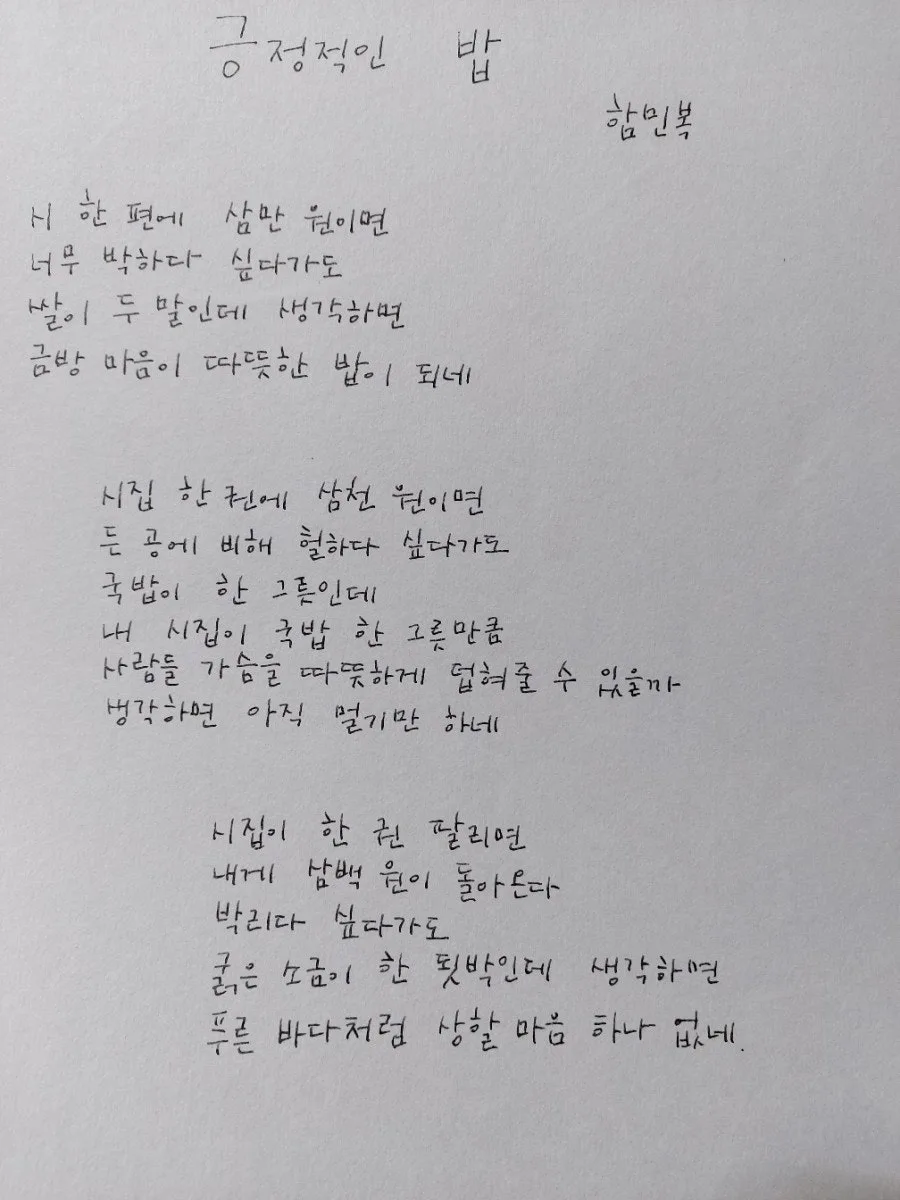 긍정적인 밥
함민복
시 한 편에 삼만 원이면
너무 박하다 싶다가도
쌀이 두 말인데 생각하면
금방 마음이 따뜻한 밥이 되네
시집 한 권에 삼천 원이면
든 공에 비해 헐하다 싶다가도
국밥이 한 그릇인데
내 시집이 국밥 한 그릇만큼
사람들 가슴을 따뜻하게 덥혀줄 수 있을까
생각하면 아직 멀기만 하네
시집이 한 권 팔리면
내게 삼백 원이 돌아온다
박리다 싶다가도
굵은 소금이 한 됫박인데 생각하면
푸른 바다처럼 상할 마음 하나 없네.